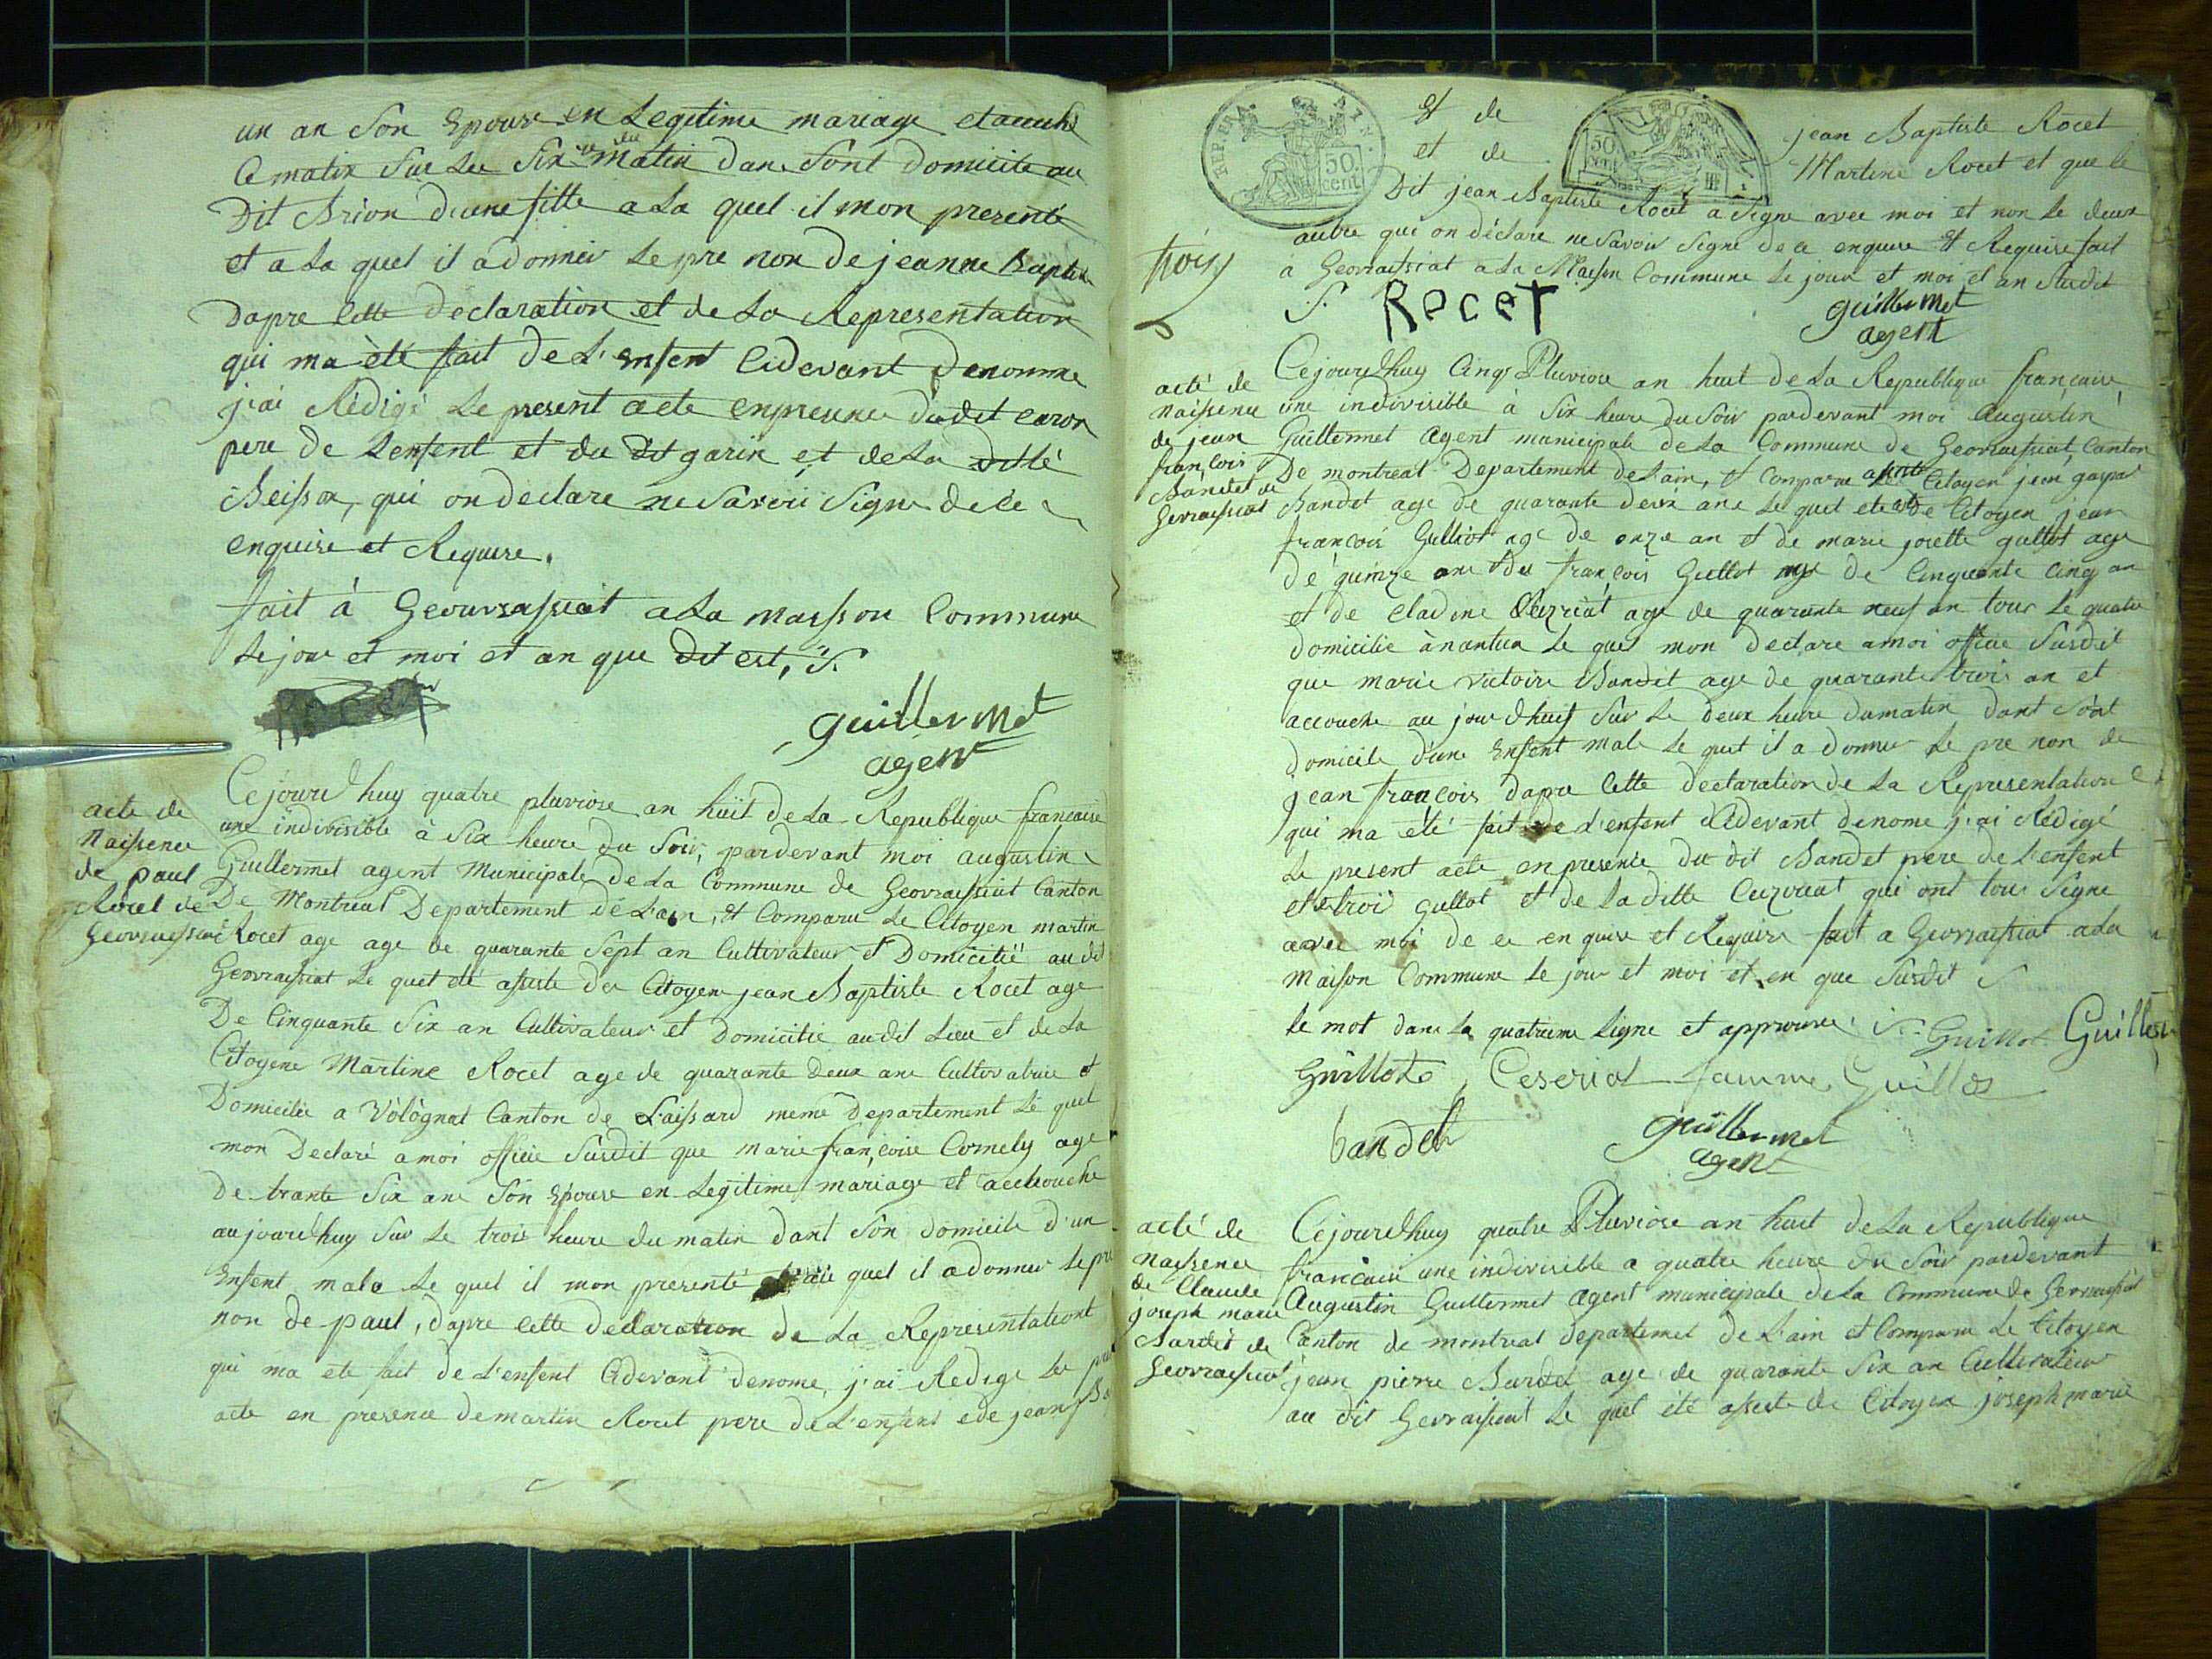 un an Son Epouse en Legitime mariage et accuché
Ce matin Sur Les Six du matin dans Sont domicile au
Dit Brion d'une fille a La quel il mon presenté
et a La quel il a donner Le pre non de jeanne Baptis
Dapre Cette declaration et de La Representation
qui ma été fait de L'enfent Cidevant denomme
j'ai Rédigé Le present acte enpresence du dit caron
pere de L'enfent et du dit garin et de La ditte
qui on declare ne Savoir Signe de ce
enquise et Requise.
fait à a La maison Commune
Le jour et moi et an que dit est, S.
Rocet
guillermet
agent
acte de
Naissence
de paul
Rocet de
Ce jourd'huy quatre pluviose an huit de La Republique francaise
une indivisible à Six heure du Soir, pardevant moi augustin
Guillermet agent Municipale de La Commune de Geovraissiat Canton
De Montreal Departement de L'ain, Et Comparu Le Citoyen martin
Rocet age age de quarante Sept an Cultivateur et Domicilié au dit
Geovraissiat Le quel été assiste des Citoyen jean Baptiste Rocet age
De Cinquante Six an Cultivateur et Domicilié audit Lieu et de La
Citoyene Martine Rocet age de quarante deux ans Cultivatrice et
Domiciliée a Vòlògnat Canton de meme Departement Le quel
mon Declaré a moi officie Susdit que marie françoise Cornely age
De trante Six ans Son Epouse en Legitime mariage et acchouche
au jourd'huy Sur Le trois heure du matin dant Son domicile d'un
Enfent male Le quel il mon presenté au quel il a donner Le pre
non de paul, dapre Cette declaration de La Representationt
qui ma ete fait de L'enfent Cidevant denome, j'ai Redige Le
acte en presence de martin Rocet pere de L'enfent e de jean
REP. FRA.
50
cent
50
cent
Et de jean Baptiste Rocet
et de Martine Rocet et que le
Dit jean Baptiste Rocet a Signe avec moi et non Le deux
autre qui on déclare ne Savoir Signe de ce enquise Et Requise fait
à Geovraissiat a La Maison Commune Le jour et moi et an Susdit
trois
S. Rocet
guillermet
agent
acté de
Naissence
de jean
françois
Bandet de
Cejourdhuy Cinq Pluviose an huit de La Republique francaise
une indivisible à Six heure du Soir pardevant moi Augustin
Guillermet Agent municipale de La Commune de Geovraissiat, Canton
De montreal Departement de L'ain, et Comparu Citoyen jean gaspar
Bandet age de quarante deux ans Le quel ete de Citoyen jean
francois age de onze an et de marie josette age
de quinze ans du françois Guillot age de Cinquante Cinq an
et de Cladine age de quarante neuf an tous Le quatre
domicilie à nantua Le quel mon declare a moi officie Susdit
que marie victoire Bandet age de quarante trois an et
accouche au jour d'huit Sur Le deux heure dumatin dant Sont
domicile d'une Enfent male Le quel il a donner Le pre non de
jean françois dapre Cette declaration de La Representation
qui ma été fait de L'enfent Cidevant denome j'ai Rédigé
Le present acte en presence du dit Bandet pere de L'enfent
et trois et de La ditte qui ont tous Signe
avec moi de ce en quise et Requise fait a Geovraissiat a La
Maison Commune Le jour et moi et en que Susdit S
Le mot dans La quatrieme Ligne et approuve. Guillot
Guillot famme Guillot
bandet
guillermet
agent
acté de
naissence
de Claude
joseph marie
Bandet de
Geovraissiat
Cejourdhuy quatre Pluviose an huit de La Republique
francaise une indivisible a quatre heure du Soir pardevant
Augustin Guillermet Agent municipale de La Commune de Geovraissiat
Canton de montreal departemet de L'ain et Comparu Le Citoyen
jean pierre Bandet age de quarante Six an Cultivateur
au dit Geovraissiat Le quel été assiste de Citoyen joseph marie